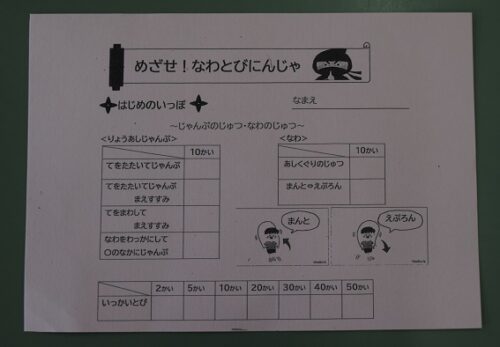 めざせ！なわとびにんじゃ
はじめのいっぽ
なまえ
～じゃんぷのじゅつ・なわのじゅつ～
<りょうあしじゃんぷ>
10かい
てをたたいてじゃんぷ
てをたたいてじゃんぷ
まえすすみ
てをまわして
まえすすみ
なわをわっかにして
○のなかにじゃんぷ
<なわ>
10かい
あしくぐりのじゅつ
まんと⇔えぷろん
まんと
えぷろん
2かい 5かい 10かい 20かい 30かい 40かい 50かい
いっかいとび